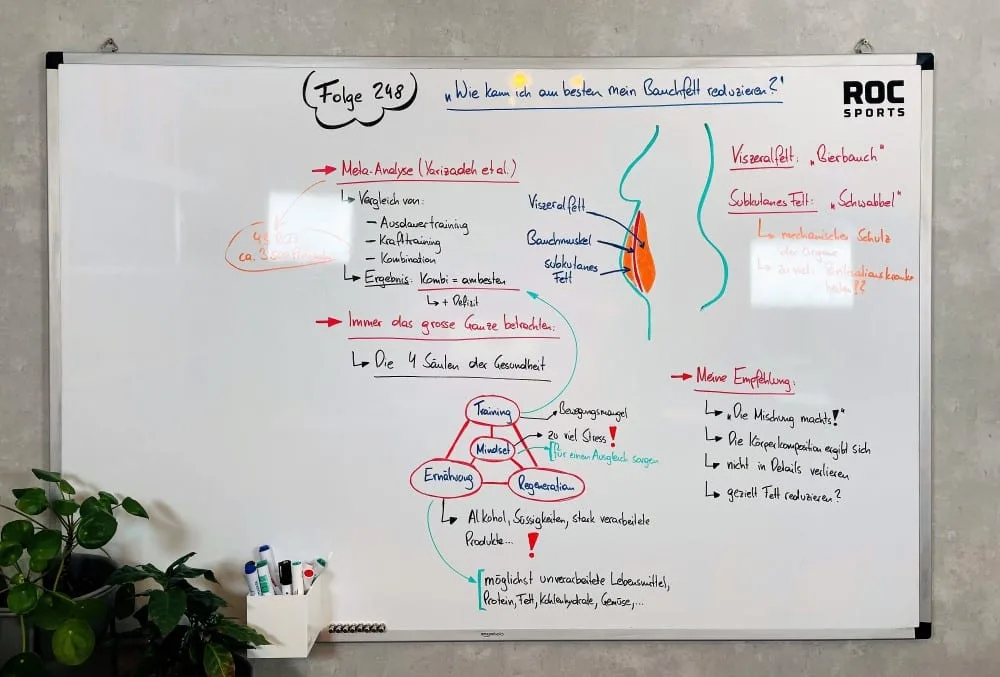 Folge 248
„Wie kann ich am besten mein Bauchfett reduzieren?"
ROC
SPORTS
→ Meta-Analyse (Yarizadeh et al.)
↳ Vergleich von:
– Ausdauertraining
– Krafttraining
– Kombination
↳ Ergebnis: Kombi = am besten
↳ + Defizit
ca.
→ Immer das grosse Ganze betrachten:
↳ Die 4 Säulen der Gesundheit
Training
Bewegungsmangel
Mindset
zu viel Stress!
für einen Ausgleich sorgen
Ernährung
Regeneration
↳ Alkohol, Süssigkeiten, stark verarbeitete
Produkte... !
möglichst unverarbeitete Lebensmittel,
Protein, Fett, Kohlenhydrate, Gemüse,...
Viszeralfett
Bauchmuskel
subkutanes
Fett
Viszeralfett: „Bierbauch"
Subkutanes Fett: „Schwabbel"
↳ mechanischer Schutz
der Organe
↳ zu viel:
→ Meine Empfehlung:
↳ „Die Mischung machts!"
↳ Die Körperkomposition ergibt sich
↳ nicht in Details verlieren
↳ gezielt Fett reduzieren?